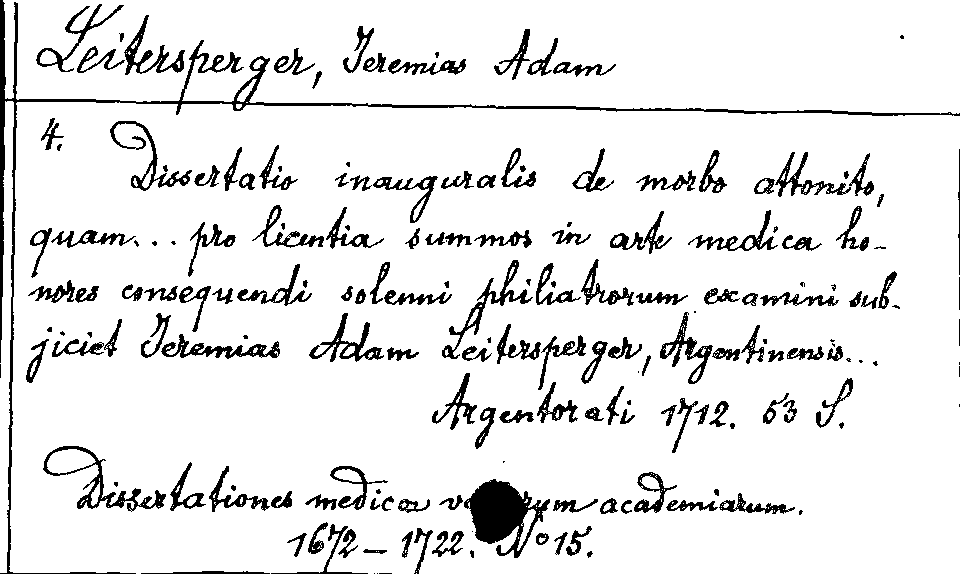 Leitersperger, Jeremias Adam
4.
Dissertatio inauguralis de morbo attonito,
quam... pro licentia summos in arte medica ho-
nores consequendi solenni philiatrorum examini sub-
jiciet Jeremias Adam Leitersperger, Argentinensis...
Argentorati 1712. 53 S.
Dissertationes medicae academiarum.
1672 - 1722. No 15.